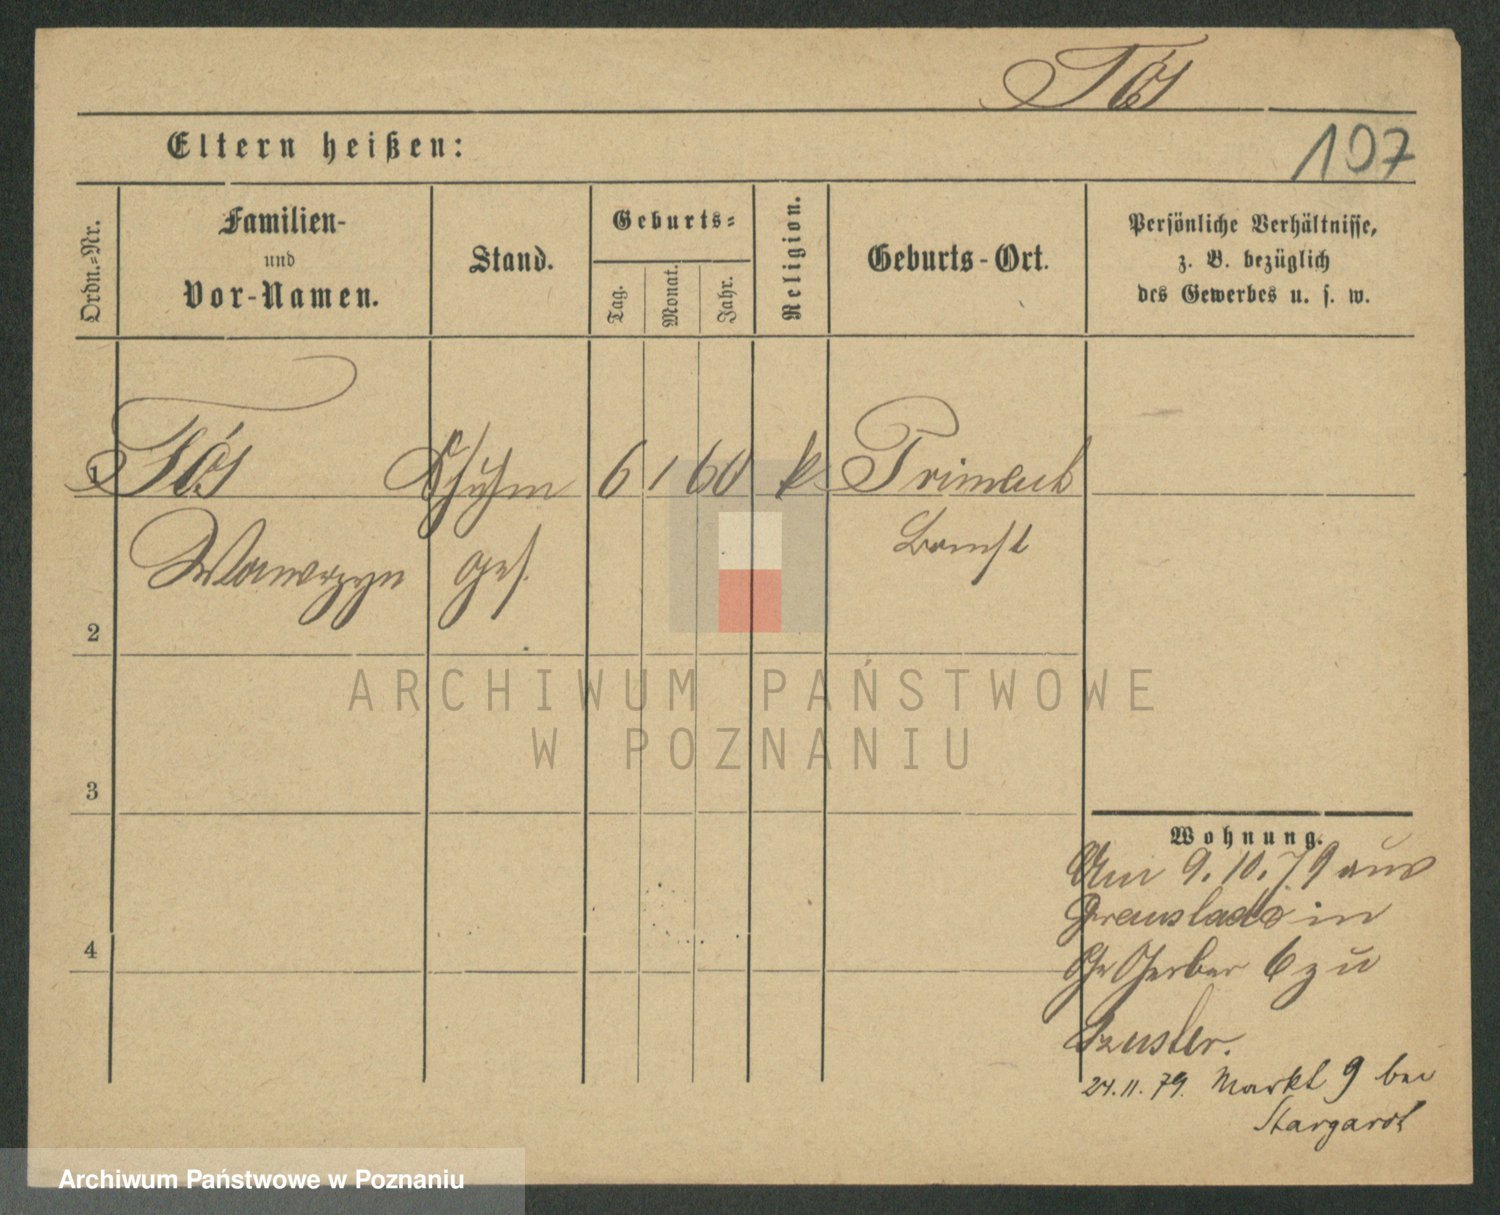 Tós
Eltern heißen:
107
Ordn.-Nr.
Familien-
und
Vor-Namen.
Stand.
Geburts-
Tag.
Monat.
Jahr.
Religion.
Geburts-Ort.
Persönliche Verhältnisse,
z. B. bezüglich
des Gewerbes u. s. w.
1 Tós 6 1 60 k
Wawrzyn ges. Bomst
2
ARCHIWUM PAŃSTWOWE
W POZNANIU
3
Wohnung.
Am 9.10.79 aus
in
4
Gr Gerber 6 zu
Szuster.
24.11.79. Markt 9 bei
Stargardt
Archiwum Państwowe w Poznaniu